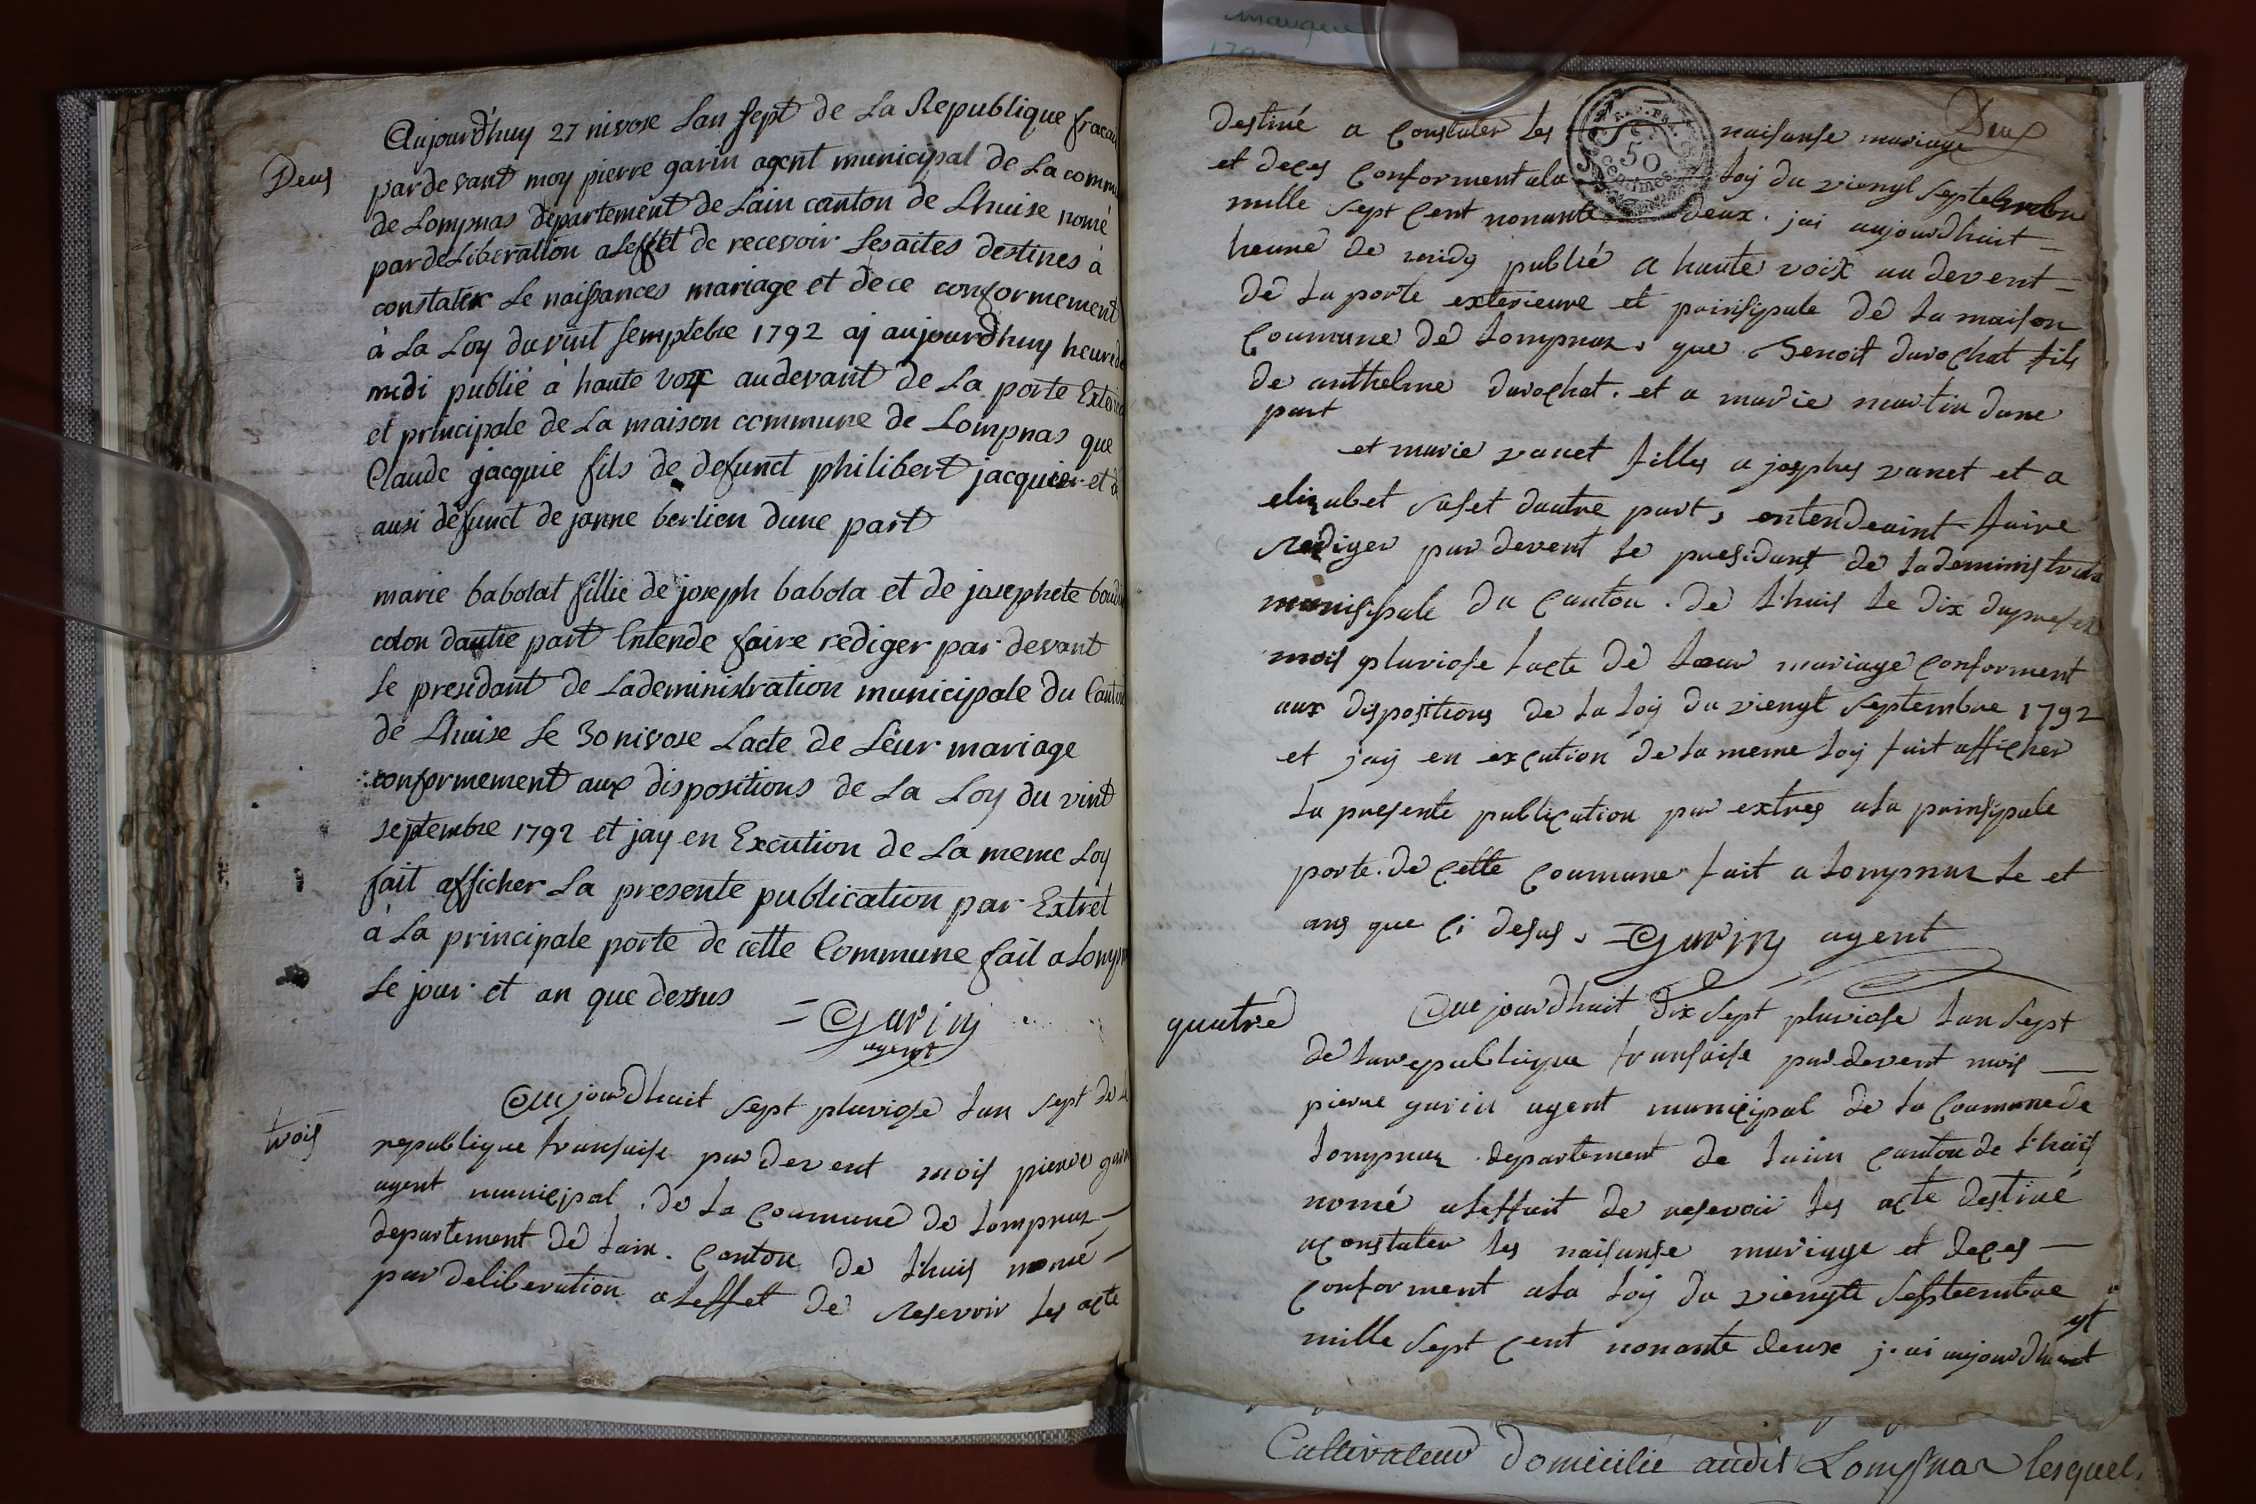 Deus
Aujourd'huy 27 nivose Lan sept de La Republique fracai
par devant moy pierre garin agent municipal de La comm
de Lompnas departement de Lain canton de Lhuise nomé
par deliberation aleffet de recevoir les aites destines à
constater Le naissances mariage et dece conformement
à La Loy du vint semptebre 1792 aj aujourdhuy heure de
midi publié à haute voix au devant de La porte Exterie
et principale de La maison commune de Lompnas que
Claude jacquie fils de defunct philibert jacquier et à
ausi defunct de janne berlien dune part
marie babolat fillie de joseph babola et de josephete
colon dautre part Intende faire rediger par devant
Le presidant de Ladeministration municipale du Canton
de Lhuise Le 30 nivose Lacte de Leur mariage
conformement aux dispositions de La Loy du vint
septembre 1792 et jay en Excution de La meme Loy
fait afficher La presente publication par Extret
à La principale porte de cette Commune fait a Lomp
Le jour et an que dessus
= Garin
agent
trois
Aujourdhuit sept pluviose lan sept de la
republique fransaise par devent mois pierre garin
agent municipal de la coumune de lompnaz
departement de lain canton de lhuis nomé
par deliberation aleffet de reservoir les acte
Deux
50
centimes
destiné a constater les naisanse mariage
et deces conforment ala loij du viengt septembre
mille sept cent nonante deux jai aujourdhuit
heure de midy publié a haute voix au devent
de la porte exterieure et prinsipale de la maison
coumune de lompnaz que Benoit durochat fils
de anthelme durochat et a marie martin dune
part
et marie vanet filles a josephes vanet et a
elizabet suset dautre part, entendeaint faire
rediger par devent le president de ladeministrata
munisipale du canton de lhuis le dix du presen
mois pluviose lacte de leur mariage conforment
aux dispositions de la loij du viengt septembre 1792
et jaij en excution de la meme loij fait afficher
la presente publication par extres ala prinsipale
porte de cette coumune fait a lompnaz le et
ans que ci desus = Garin agent
quatre
Aujourdhuit dix sept pluviose lan sept
de la republique fransaise par devent mois
pierre garin agent municipal de la coumune de
lompnaz departement de lain canton de lhuis
nomé aleffait de reservoir les acte destiné
aconstater les naisanse mariage et deces
conforment ala loij du viengte septembre
mille sept cent nonante deux j ai aujourdhuit
Cultivateur domicilié audit Lompnaz lesquel